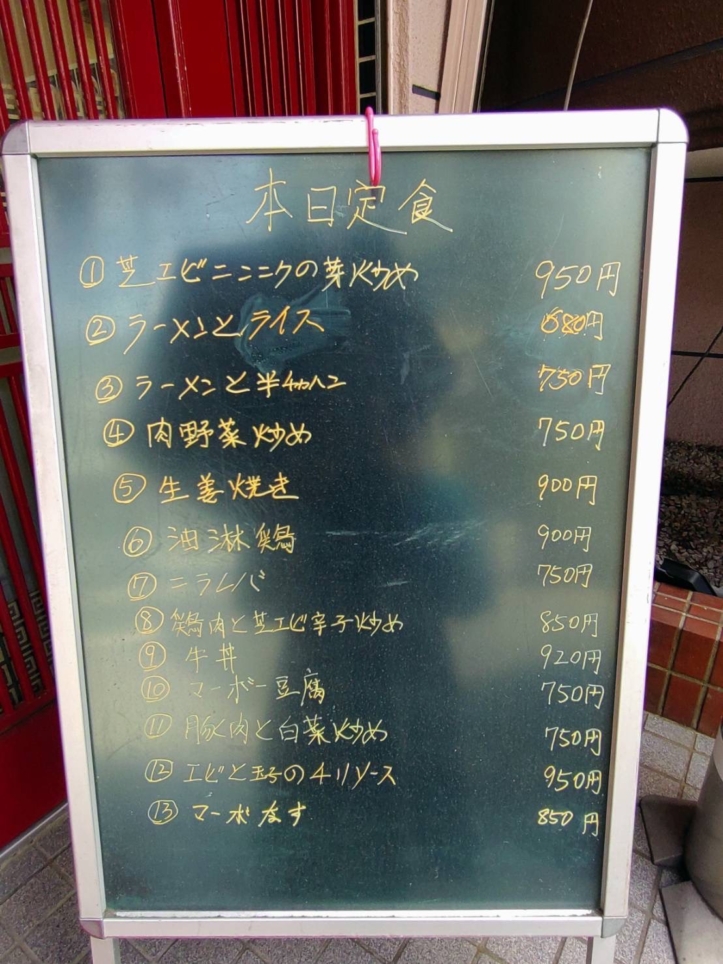 本日定食
① 芝エビニンニクの芽炒め 950円
② ラーメンとライス 680円
③ ラーメンと半チャーハン 750円
④ 肉野菜炒め 750円
⑤ 生姜焼き 900円
⑥ 油淋鶏 900円
⑦ ニラレバ 750円
⑧ 鶏肉と芝エビ辛子炒め 850円
⑨ 牛丼 920円
⑩ マーボー豆腐 750円
⑪ 豚肉と白菜炒め 750円
⑫ エビと玉子のチリソース 950円
⑬ マーボなす 850円